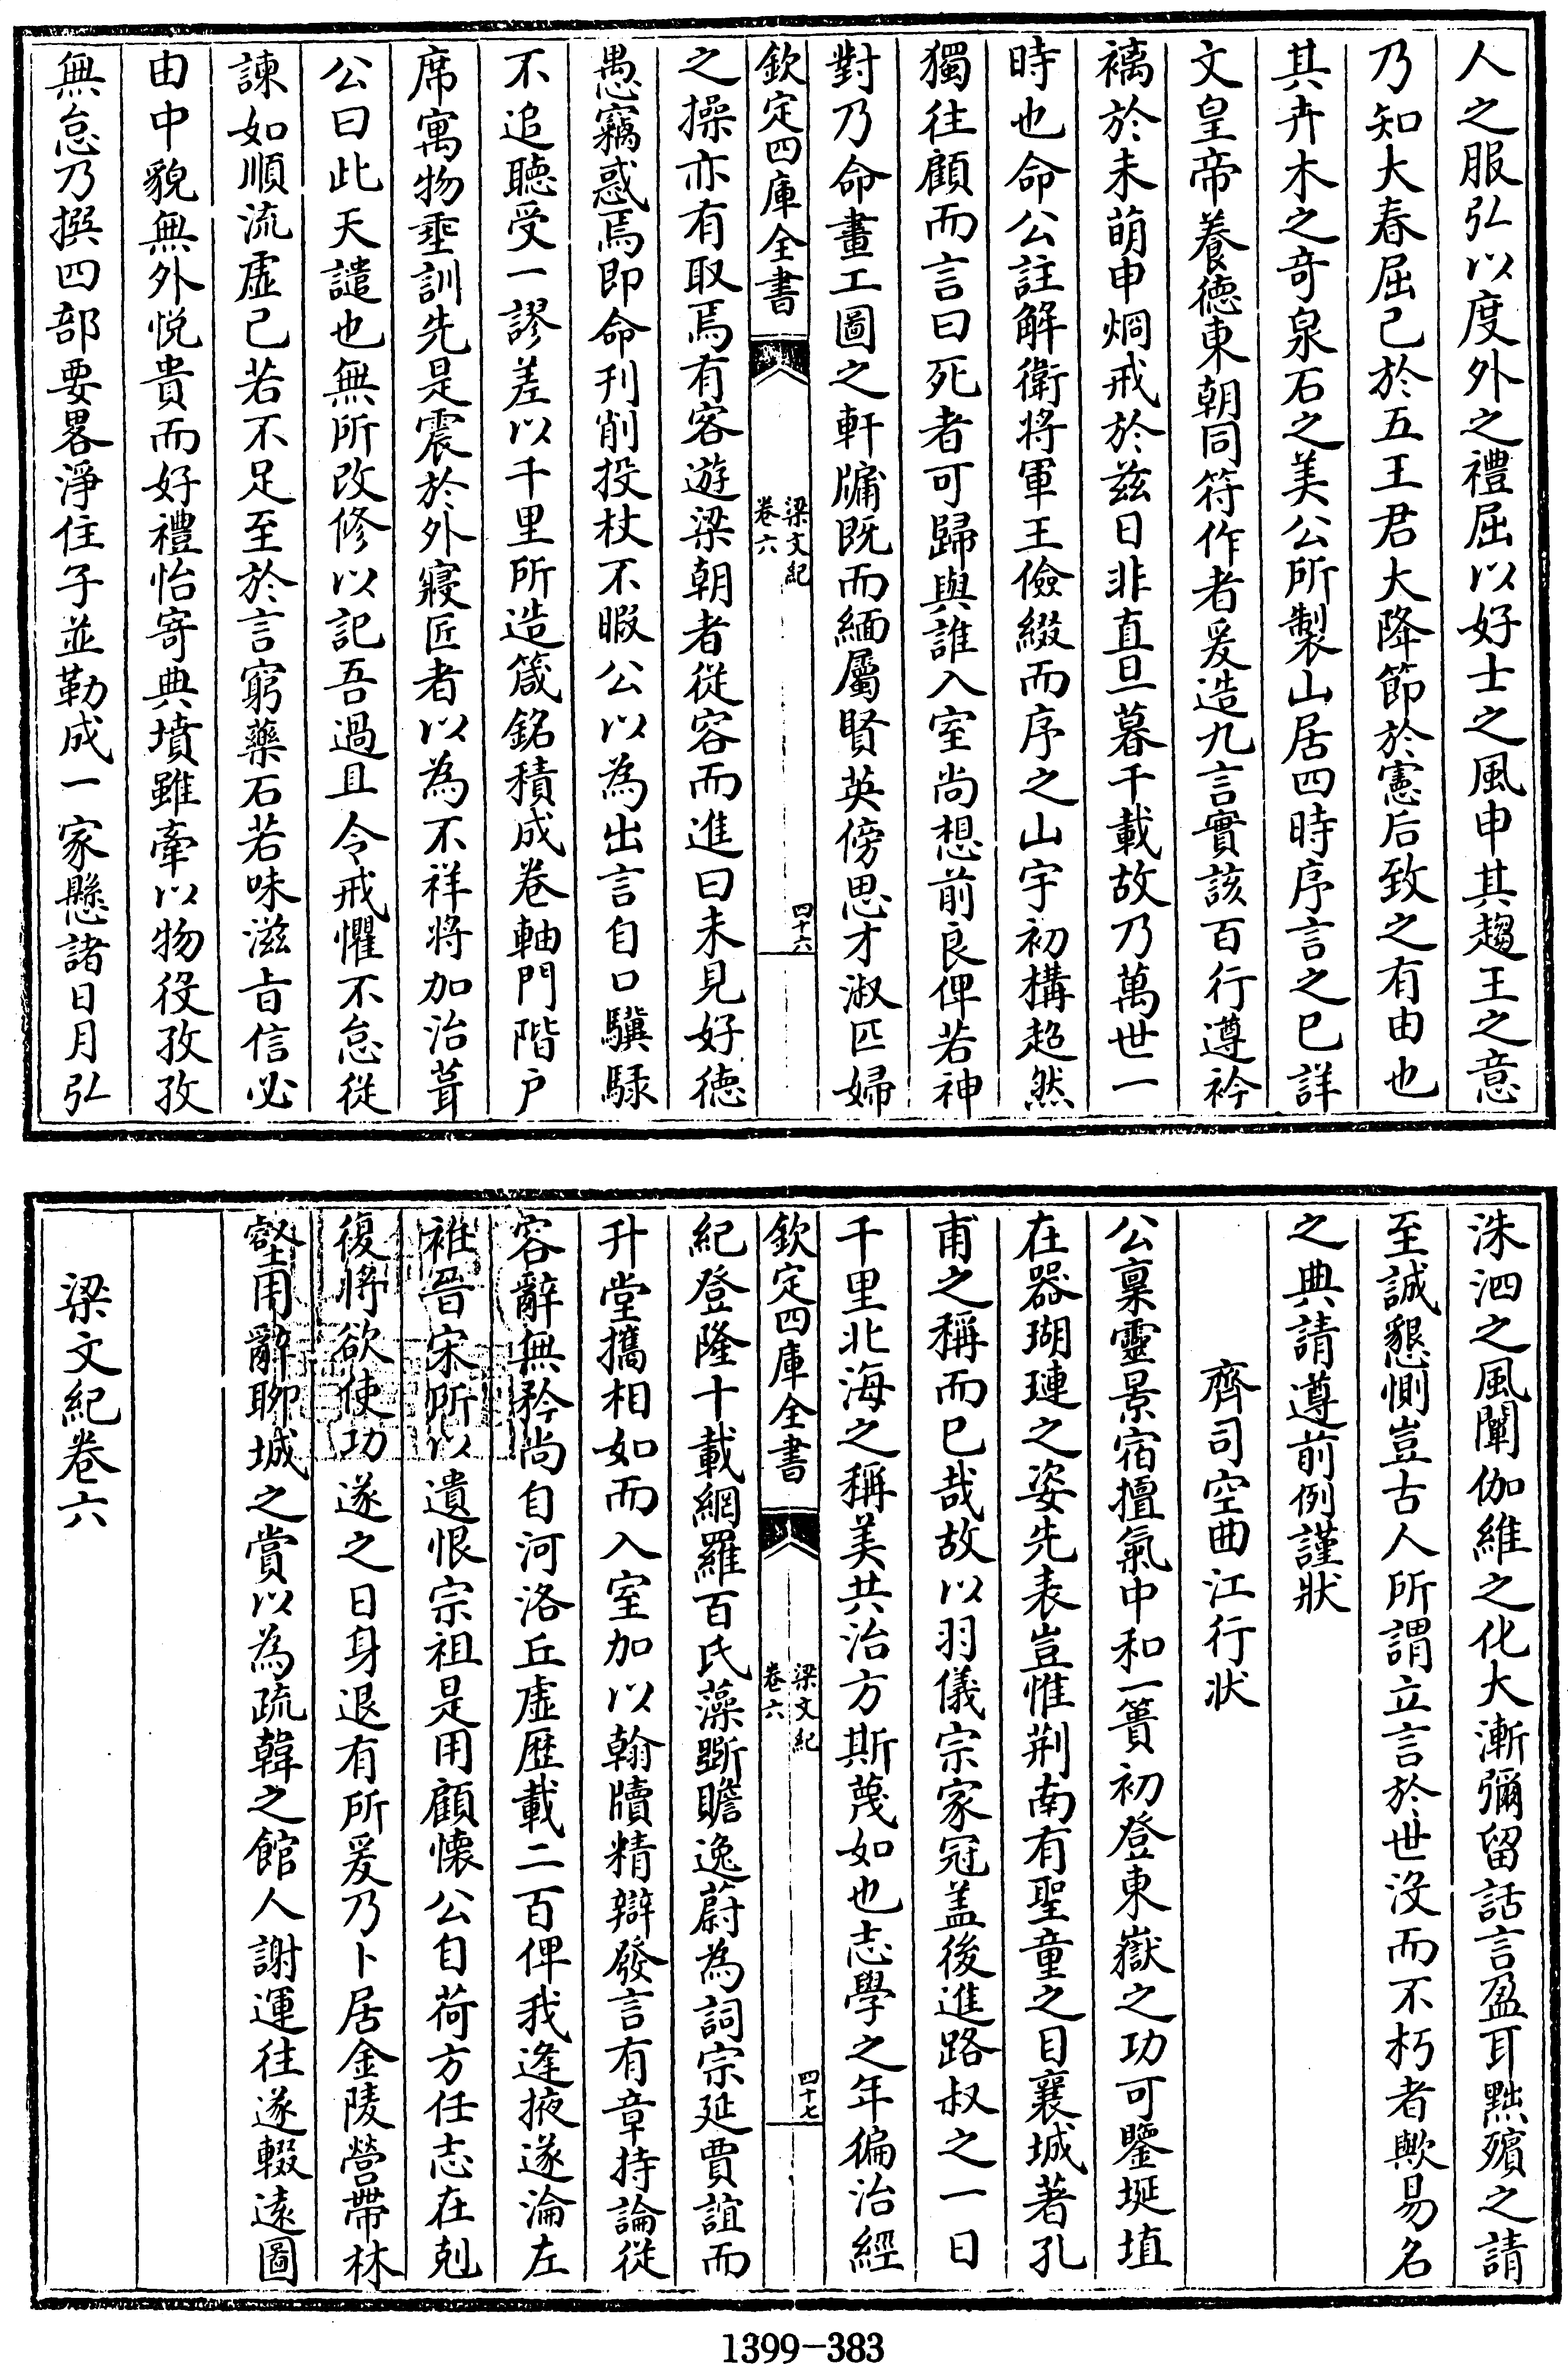 人之服弘以度外之禮屈以好士之風申其趨王之意
乃知大春屈己於五王君大降節於憲后致之有由也
其卉木之奇泉石之美公所製山居四時序言之已詳
文皇帝養德東朝同符作者爰造九言實該百行遵衿
褵於未萌申烱戒於兹日非直旦暮千載故乃萬世一
時也命公註解衛將軍王儉綴而序之山宇初構超然
獨往顧而言曰死者可歸與誰入室尚想前良俾若神
對乃命畫工圖之軒牖既而緬屬賢英傍思才淑匹婦
欽定四庫全書
梁文紀
卷六
四十六
之操亦有取焉有客遊梁朝者從容而進曰未見好德
愚竊惑焉即命刊削投杖不暇公以為出言自口驥騄
不追聽受一謬差以千里所造箴銘積成卷軸門階户
席寓物垂訓先是震於外寢匠者以為不祥將加治葺
公曰此天譴也無所改修以記吾過且令戒懼不怠從
諫如順流虚己若不足至於言窮藥石若味滋旨信必
由中貌無外悅貴而好禮怡寄典墳雖牽以物役孜孜
無怠乃撰四部要畧淨住子並勒成一家懸諸日月弘
洙泗之風闡伽維之化大漸彌留話言盈耳黜殯之請
至誠懇惻豈古人所謂立言於世沒而不朽者歟易名
之典請遵前例謹狀
齊司空曲江行状
公稟靈景宿擅氣中和一簣初登東嶽之功可鑒埏埴
在器瑚璉之姿先表豈惟荆南有聖童之目襄城著孔
甫之稱而已哉故以羽儀宗家冠盖後進路叔之一日
千里北海之稱美共治方斯蔑如也志學之年徧治經
欽定四庫全書
梁文紀
卷六
四十七
紀登隆十載網羅百氏藻斲贍逸蔚為詞宗延賈誼而
升堂攜相如而入室加以翰牘精辯發言有章持論從
容辭無矜尚自河洛丘虚歷載二百俾我逢掖遂淪左
袵晉宋所以遺恨宗祖是用顧懷公自荷方任志在剋
復將欲使功遂之日身退有所爰乃卜居金陵營帶林
壑用辭聊城之賞以為疏韓之館人謝運往遂輟遠圖
梁文紀卷六
1399-383